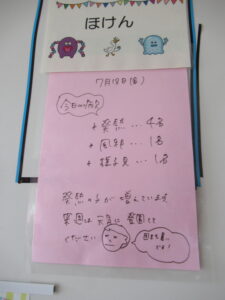 ほけん
7月18日(金)
今日の病気
+ 発熱 … 4名
+ 風邪 … 1名
+ 様子見 … 1名
発熱の子が増えています。
来週は元気に登園して
ください